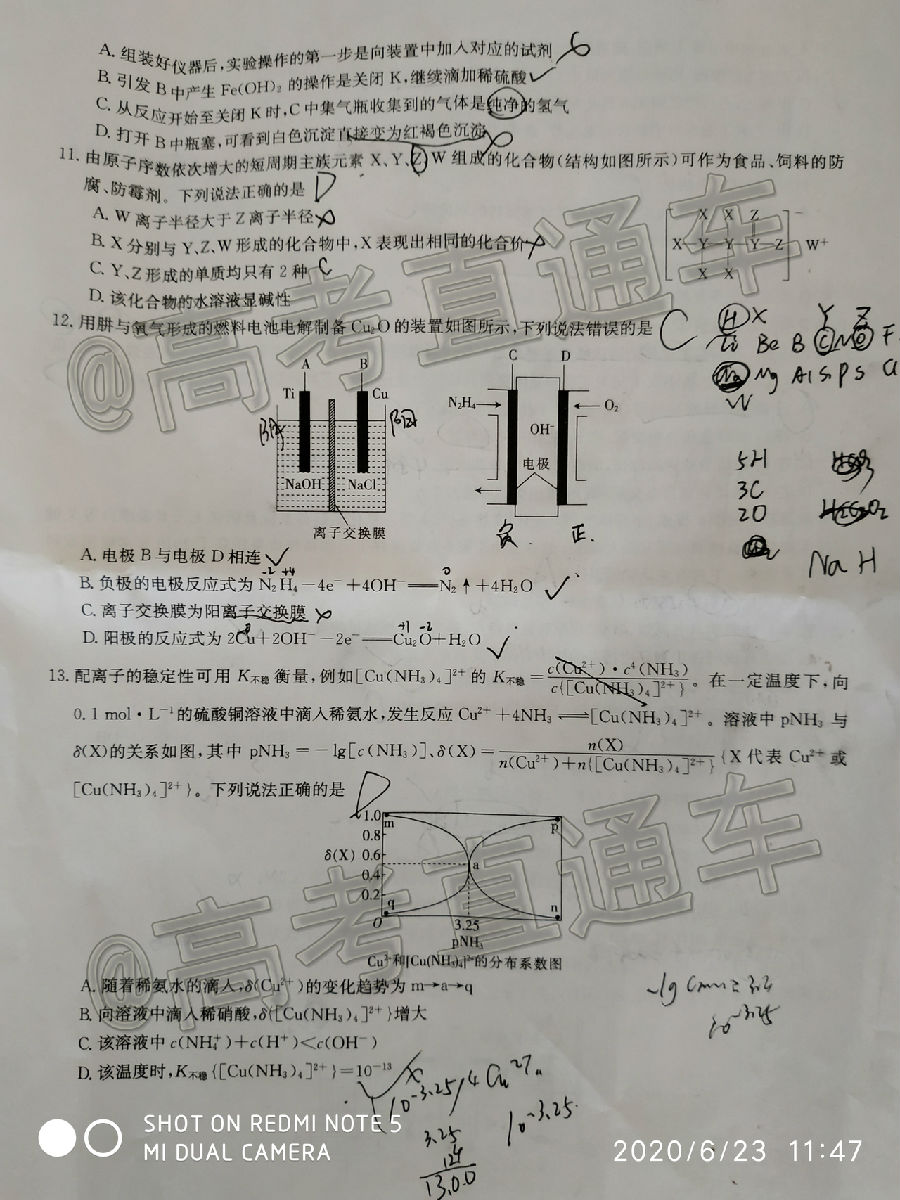 A. 组装好仪器后,实验操作的第一步是向装置中加入对应的试剂
B. 引发B中产生Fe(OH)₂的操作是关闭K,继续滴加稀硫酸
C. 从反应开始至关闭K时,C中集气瓶收集到的气体是纯净的氢气
D. 打开B中瓶塞,可看到白色沉淀直接变为红褐色沉淀
11. 由原子序数依次增大的短周期主族元素X、Y、Z、W组成的化合物(结构如图所示)可作为食品、饲料的防
腐、防霉剂。下列说法正确的是 D
A. W离子半径大于Z离子半径
B. X分别与Y、Z、W形成的化合物中,X表现出相同的化合价
C. Y、Z形成的单质均只有2种
D. 该化合物的水溶液显碱性
X X Z
X—Y—Y—Y—Z
X X
− W⁺
12. 用肼与氧气形成的燃料电池电解制备Cu₂O的装置如图所示,下列说法错误的是 C
H X Y Z
Li Be B C N O F
Na Mg Al Si P S Cl
W
A B
Ti Cu
NaOH NaCl
离子交换膜
C D
N₂H₄ O₂
OH⁻
电极
负 正.
5H
3C
2O
NaH
A. 电极B与电极D相连
-2 +4 0
B. 负极的电极反应式为N₂H₄−4e⁻+4OH⁻══N₂↑+4H₂O
C. 离子交换膜为阳离子交换膜
+1 -2
D. 阳极的反应式为2Cu+2OH⁻−2e⁻══Cu₂O+H₂O
13. 配离子的稳定性可用K不稳衡量,例如[Cu(NH₃)₄]²⁺的K不稳=c(Cu²⁺)·c⁴(NH₃)/c{[Cu(NH₃)₄]²⁺}。在一定温度下,向
0.1 mol·L⁻¹的硫酸铜溶液中滴入稀氨水,发生反应Cu²⁺+4NH₃⇌[Cu(NH₃)₄]²⁺。溶液中pNH₃与
δ(X)的关系如图,其中pNH₃=−lg[c(NH₃)]、δ(X)=n(X)/n(Cu²⁺)+n{[Cu(NH₃)₄]²⁺}{X代表Cu²⁺或
[Cu(NH₃)₄]²⁺}。下列说法正确的是 D
1.0
m p
0.8
δ(X) 0.6
a
0.4
0.2
q n
O 3.25
pNH₃
Cu²⁺和[Cu(NH₃)₄]²⁺的分布系数图
A. 随着稀氨水的滴入,δ(Cu²⁺)的变化趋势为m→a→q
B. 向溶液中滴入稀硝酸,δ{[Cu(NH₃)₄]²⁺}增大
C. 该溶液中c(NH₄⁺)+c(H⁺)<c(OH⁻)
D. 该温度时,K不稳{[Cu(NH₃)₄]²⁺}=10⁻¹³
10⁻³·²⁵
10⁻³·²⁵
3.25
13.00
@高考直通车
@高考直通车
SHOT ON REDMI NOTE 5
MI DUAL CAMERA
2020/6/23 11:47